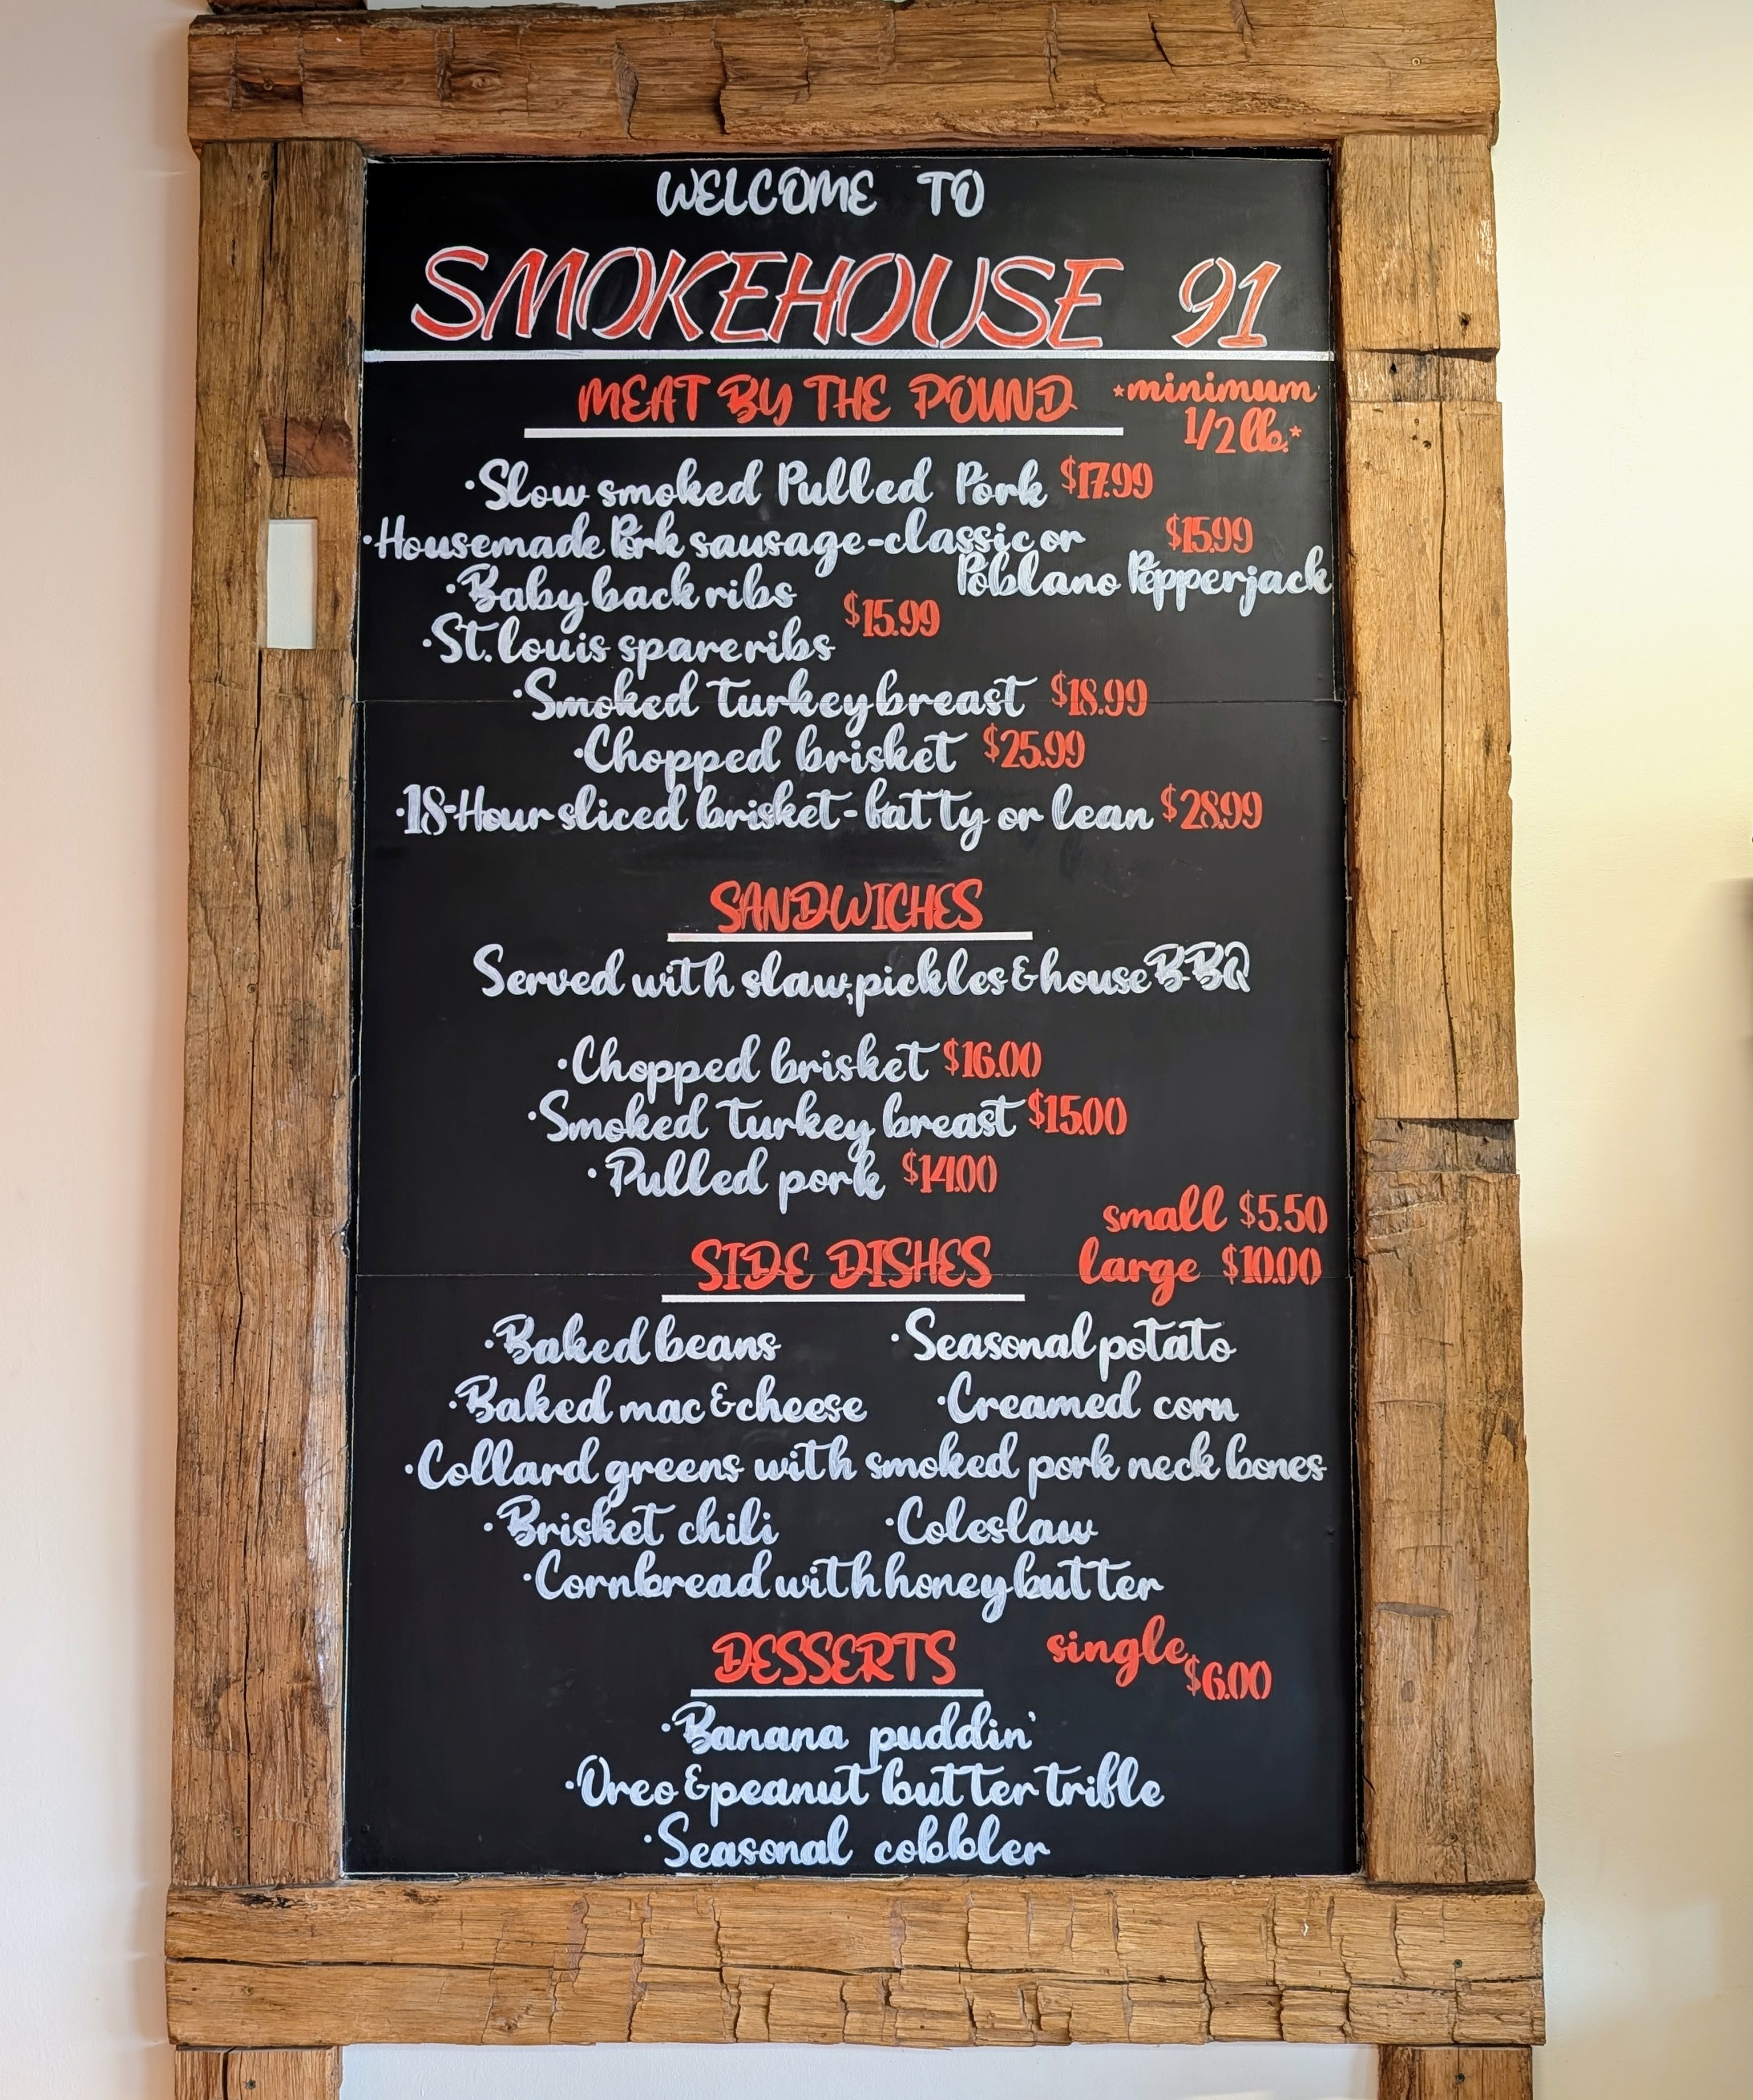 WELCOME TO
SMOKEHOUSE 91
MEAT BY THE POUND
*minimum
1/2 lb.*
·Slow smoked Pulled Pork $17.99
·Housemade Pork sausage-classic or $15.99
Poblano Pepperjack
·Baby back ribs
$15.99
·St. louis spare ribs
·Smoked turkey breast $18.99
·Chopped brisket $25.99
·18-Hour sliced brisket-fatty or lean $28.99
SANDWICHES
Served with slaw, pickles & house BBQ
·Chopped brisket $16.00
·Smoked turkey breast $15.00
·Pulled pork $14.00
small $5.50
SIDE DISHES large $10.00
·Baked beans ·Seasonal potato
·Baked mac & cheese ·Creamed corn
·Collard greens with smoked pork neck bones
·Brisket chili ·Coleslaw
·Cornbread with honey butter
DESSERTS single $6.00
·Banana puddin'
·Oreo & peanut butter trifle
·Seasonal cobbler